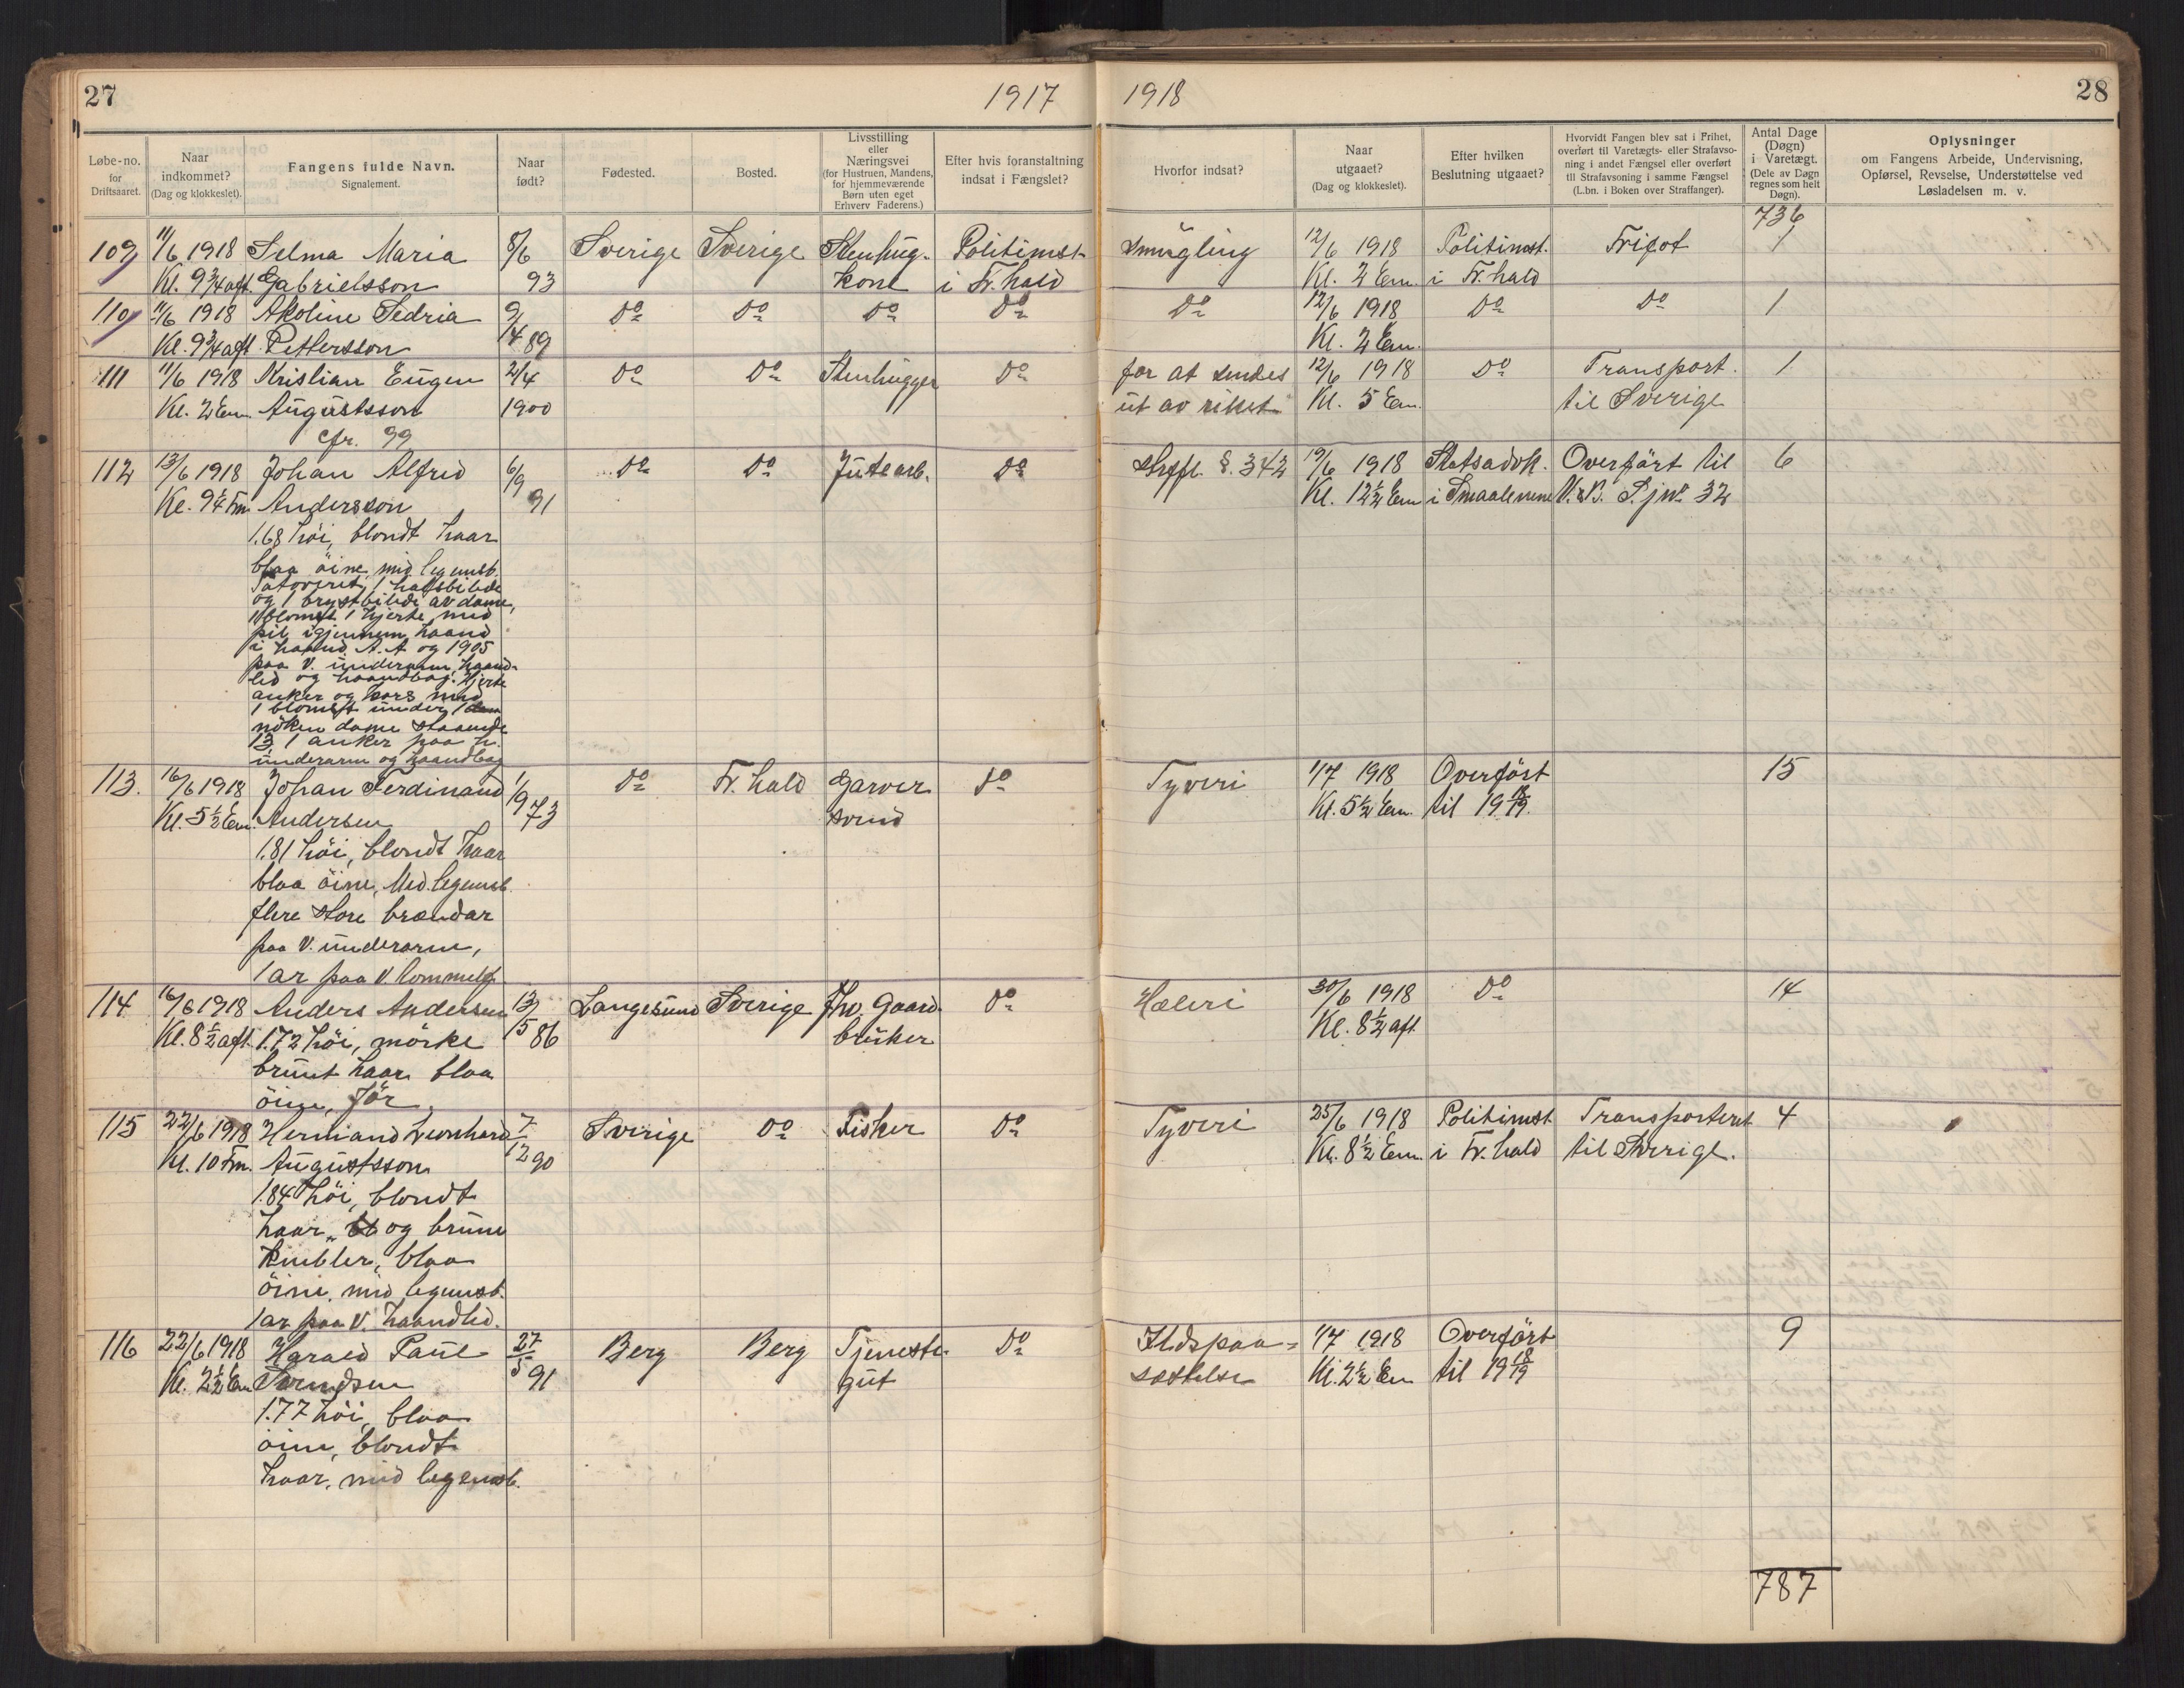 27 1917 1918 28
Løbe-no. for Driftsaaret.
Naar indkommet? (Dag og klokkeslet).
Fangens fulde Navn. Signalement.
Naar født?
Fødested.
Bosted.
Livsstilling eller Næringsvei (for Hustruen, Mandens, for hjemmeværende Børn uten eget Erhverv Faderens.)
Efter hvis foranstaltning indsat i Fængslet?
Hvorfor indsat?
Naar utgaaet? (Dag og klokkeslet).
Efter hvilken Beslutning utgaaet?
Hvorvidt Fangen blev sat i Frihet, overført til Varetægts- eller Strafavsoning i andet Fængsel eller overført til Strafavsoning i samme Fængsel (L.bn. i Boken over Straffanger).
Antal Dage (Døgn) i Varetægt. (Dele av Døgn regnes som helt Døgn).
Oplysninger om Fangens Arbeide, Undervisning, Opførsel, Revselse, Understøttelse ved Løsladelsen m. v.
736
109 11/6 1918 Selma Maria 8/6 Sverige Sverige Stenhug- Politimst. Smugling 12/6 1918 Politimst. Frifot 1
Kl. 9 3/4 aft. Gabrielsson 93 kone i Fr.hald Kl. 2 Em. i Fr.hald
110 11/6 1918 Akoline Sedria 9/4 Do Do Do Do Do 12/6 1918 Do Do 1
Kl. 9 3/4 aft. Pettersson 89 Kl. 2 Em.
111 11/6 1918 Kristian Eugen 21/4 Do Do Stenhugger Do for at sendes 12/6 1918 Do Transport. 1
Kl. 2 Em. Augustsson 1900 ut av riket Kl. 5 Em. til Sverige
cfr. 99
112 13/6 1918 Johan Alfred 6/9 Do Do Jutearb. Do Strfl. §. 342 19/6 1918 Statsadvk. Overført til 6
Kl. 9 1/4 Fm. Andersson 91 Kl. 12 1/2 Em i Smaalenene V.&B. S.jnr. 32
1.68 høi, blondt haar
blaa øine, mid. legemsb.
Tatoveret, 1 halfsbilede
og 1 brystbilede av dame,
1 blomst 1 hjerte med
pil igjennem, haand
i haand A.A og 1905
paa v. underarm, haand-
led og haandbag. Hjerte
anker og kors med
1 blomst under, 1
nøken dame staaende
13, 1 anker paa h.
underarm og haandbag
113. 16/6 1918 Johan Ferdinand 1/9 Do Fr.hald Garver Do Tyveri 1/7 1918 Overført 15
Kl. 5 1/2 Em. Andersen 73 svend Kl. 5 1/2 Em. til 19 18/19.
1.81 høi, blondt haar
blaa øine, Mid. legemsb.
flere store brændar
paa v. underarm,
1 ar paa v tommelf.
114 16/6 1918 Anders Andersen 13/5 Langesund Sverige Fhv. Gaard- Do Hæleri 30/6 1918 Do 14
Kl. 8 1/2 aft. 1.72 høi, mørke 86 bruker Kl. 8 1/2 aft.
brunt haar blaa
øine, før.
115 22/6 1918 Hermand Leonhard 7/12 Sverige Do Fisker Do Tyveri 25/6 1918 Politimst. Transporteret 4
Kl. 10 Fm. Augustsson 90 Kl. 8 1/2 Em. i Fr.hald til Sverige.
1.84 høi, blondt
haar, og brune
knebler, blaa
øine, mid legemsb.
1 ar paa v. haandled.
116 22/6 1918 Harald Paul 27/5 Berg Berg Tjeneste- Do Ildspaa- 1/7 1918 Overført 9
Kl. 2 1/2 Em Svendsen 91 gut sættelse Kl. 2 1/2 Em til 19 18/19
1.77 høi, blaa
øine, blondt
haar, mid legemsb.
787